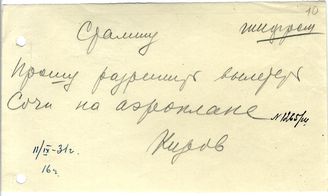 10
Сталину
шифром
Прошу разрешить вылететь
Сочи на аэроплане
Киров
11/IX-31г.
16ч.